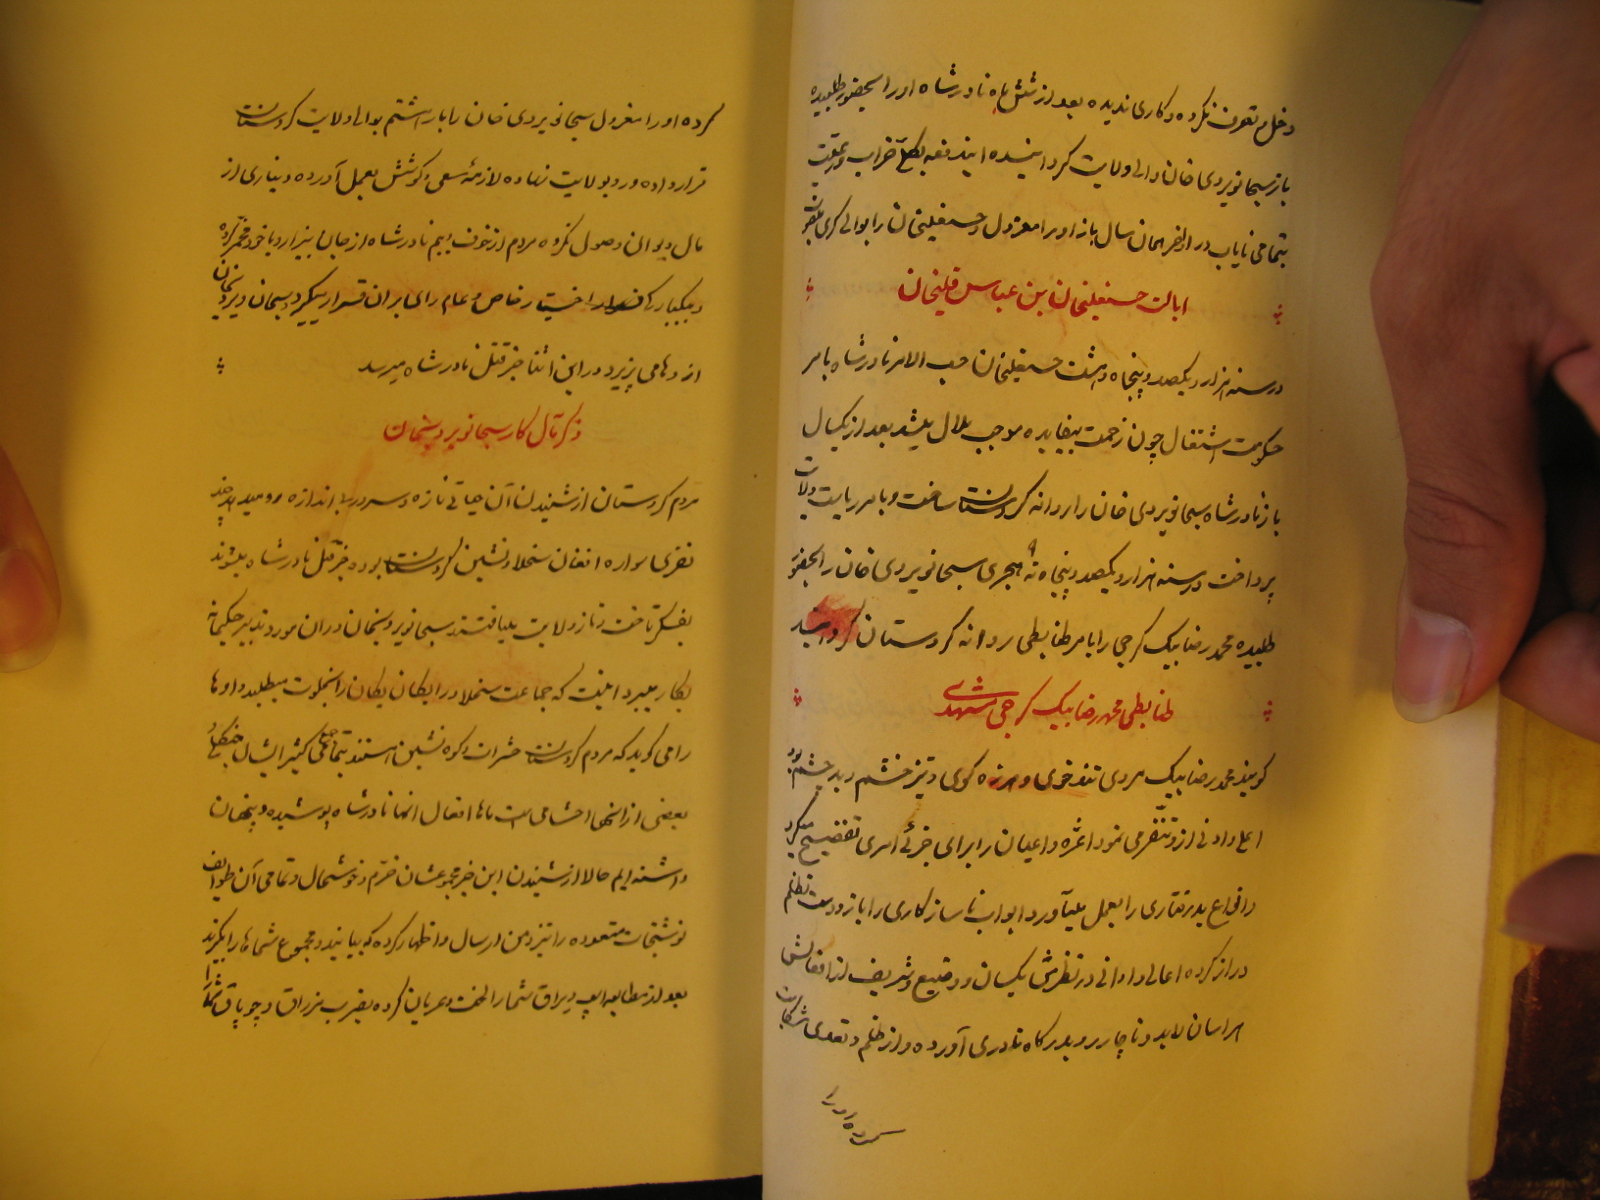 دخل و تصرف نکرده و کاری ندیده بعد از شش ماه نادرشاه او را بحضور طلبیده
باز سبحانویردی خان والی ولایت گردانیده ایندفعه بکلی خراب و رعیت
بتمامی نایاب در اواخر همان سال باز او را معزول و حسنعلیخان را بوالی گری
ایالت حسنعلیخان بن عباس قلیخان
در سنه هزار و یکصد و پنجاه و هشت حسنعلیخان حسب الامر نادرشاه بامر
حکومت اشتغال چون زحمت بیفایده موجب ملال میشد بعد از یکسال
باز نادرشاه سبحانویردی خان را روانه کردستان ساخت و بامر ریاست ولایت
پرداخت در سنه هزار و یکصد و پنجاه و نه هجری سبحانویردی خان را بحضور
طلبیده محمد رضا بیک گرجی را بامر ضابطی روانه کردستان گردانید
ضابطی محمد رضا بیک گرجی مشهدی
گویند محمد رضا بیک مردی تند خوی و هرزه گوی و تیز خشم و بد چشم بود
اعلی و ادنی ازو تنفر می نمود اعزه و اعیان را برای جزئی امری تفضیح میکرد
و انواع بدرفتاری را بعمل میآورد ابواب ناسازکاری را باز و دست تظلم
دراز کرده اعالی و ادانی در نظرش یکسان و وضیع و شریف از افعالش
هراسان لابد و ناچار رو بدرگاه نادری آورده و از ظلم و تعدی شکایت
کرده او را
کرده او را معزول سبحانویردی خان را بار هشتم بوالی ولایت کردستان
قرار داده ورود بولایت نهاده لازمهٔ سعی و کوشش بعمل آورده دیناری از
مال دیوان وصول نکرده مردم از خوف و بیم نادرشاه از جان بیزار و با خود مخمر کرده
و یکبارگی فرار اختیار خاص و عام رای بر آن قرار میگیرد سبحان ویردیخان
از وهامی پذیرد در این اثنا خبر قتل نادرشاه میرسد
ذکر مآل کار سبحانویردیخان
مردم کردستان از شنیدن آن حیاتی تازه و سرور بی اندازه
نفری سواره افغان سنجلاو نشین کردستان بوده خبر قتل نادرشاه میشوند
بفکر تاخت و تاز ولایت میافتند سبحانویردیخان در آن مورد تدبیر حکیمانه
بکار میبرد اینست که جماعت سنجلاو را یکان یکان را بخلوت میطلبد و او ها
را می گوید که مردم کردستان حشرات و کوه نشین هستند
بعضی از آنها احشامی است ماها افعال آنها نادرشاه پوشیده و پنهان
داشته ایم حالا از شنیدن این خبر مجموعشان خرم و خوشحال و تمامی آن طوایف
نوشتجات متعدده را نزد من ارسال و اظهار کرده که بیایند و مجموع شماها را بگیرند
بعد از مطالبه اسب و یراق شما را لخت و عریان کرده بضرب مزراق و چوب